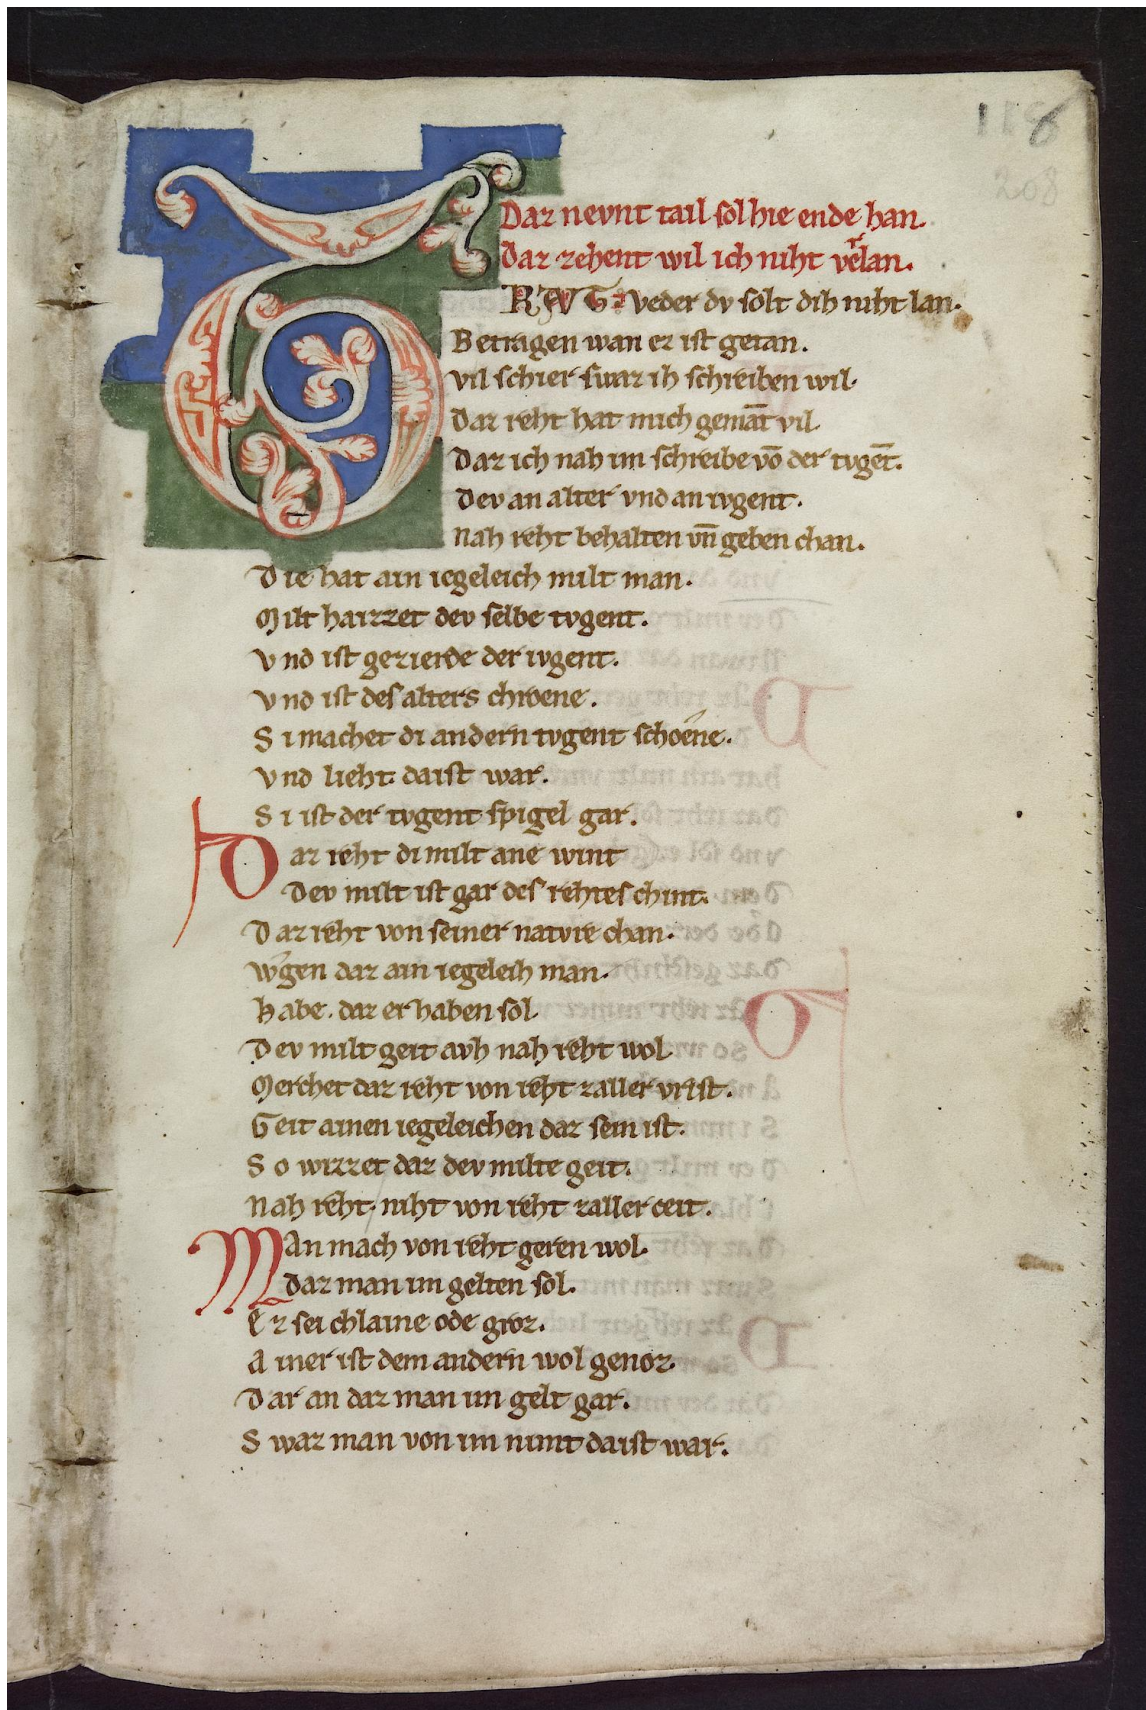 118
208
Daz nevnt tail sol hie ende han.
Daz zehent wil ich niht v͛lan.
TRAG: veder dv solt dih niht lan.
Betragen wan ez ist getan.
vil schier swaz ih schreiben wil.
Daz reht hat mich gemāt vil.
Daz ich nah im schreibe vō der tvgēt.
Dev an alter vnd an ivgent.
Nah reht behalten vn̄ geben chan.
Die hat ain iegeleich milt man.
Milt haizzet dev selbe tvgent.
Vnd ist gezierde der ivgent.
Vnd ist des alters chroene.
Si machet di andern tvgent schoene.
Vnd lieht. daist war.
Si ist der tvgent spigel gar.
Daz reht di milt ane wint
Dev milt ist gar des rehtes chint.
Daz reht von seiner natvre chan.
w͛gen daz ain iegeleih man.
Habe. daz er haben sol.
Dev milt geit avh nah reht wol.
Merchet daz reht von reht zaller vrist.
Geit ainen iegeleichen daz sein ist.
So wizzet daz dev milte geit.
Nah reht. niht von reht zaller ceit.
Man mach von reht geren wol.
daz man im gelten sol.
Ez sei chlaine ode groz.
Ainer ist dem andern wol genoz.
Dar an daz man im gelt gar.
Swaz man von im nimt daist war.